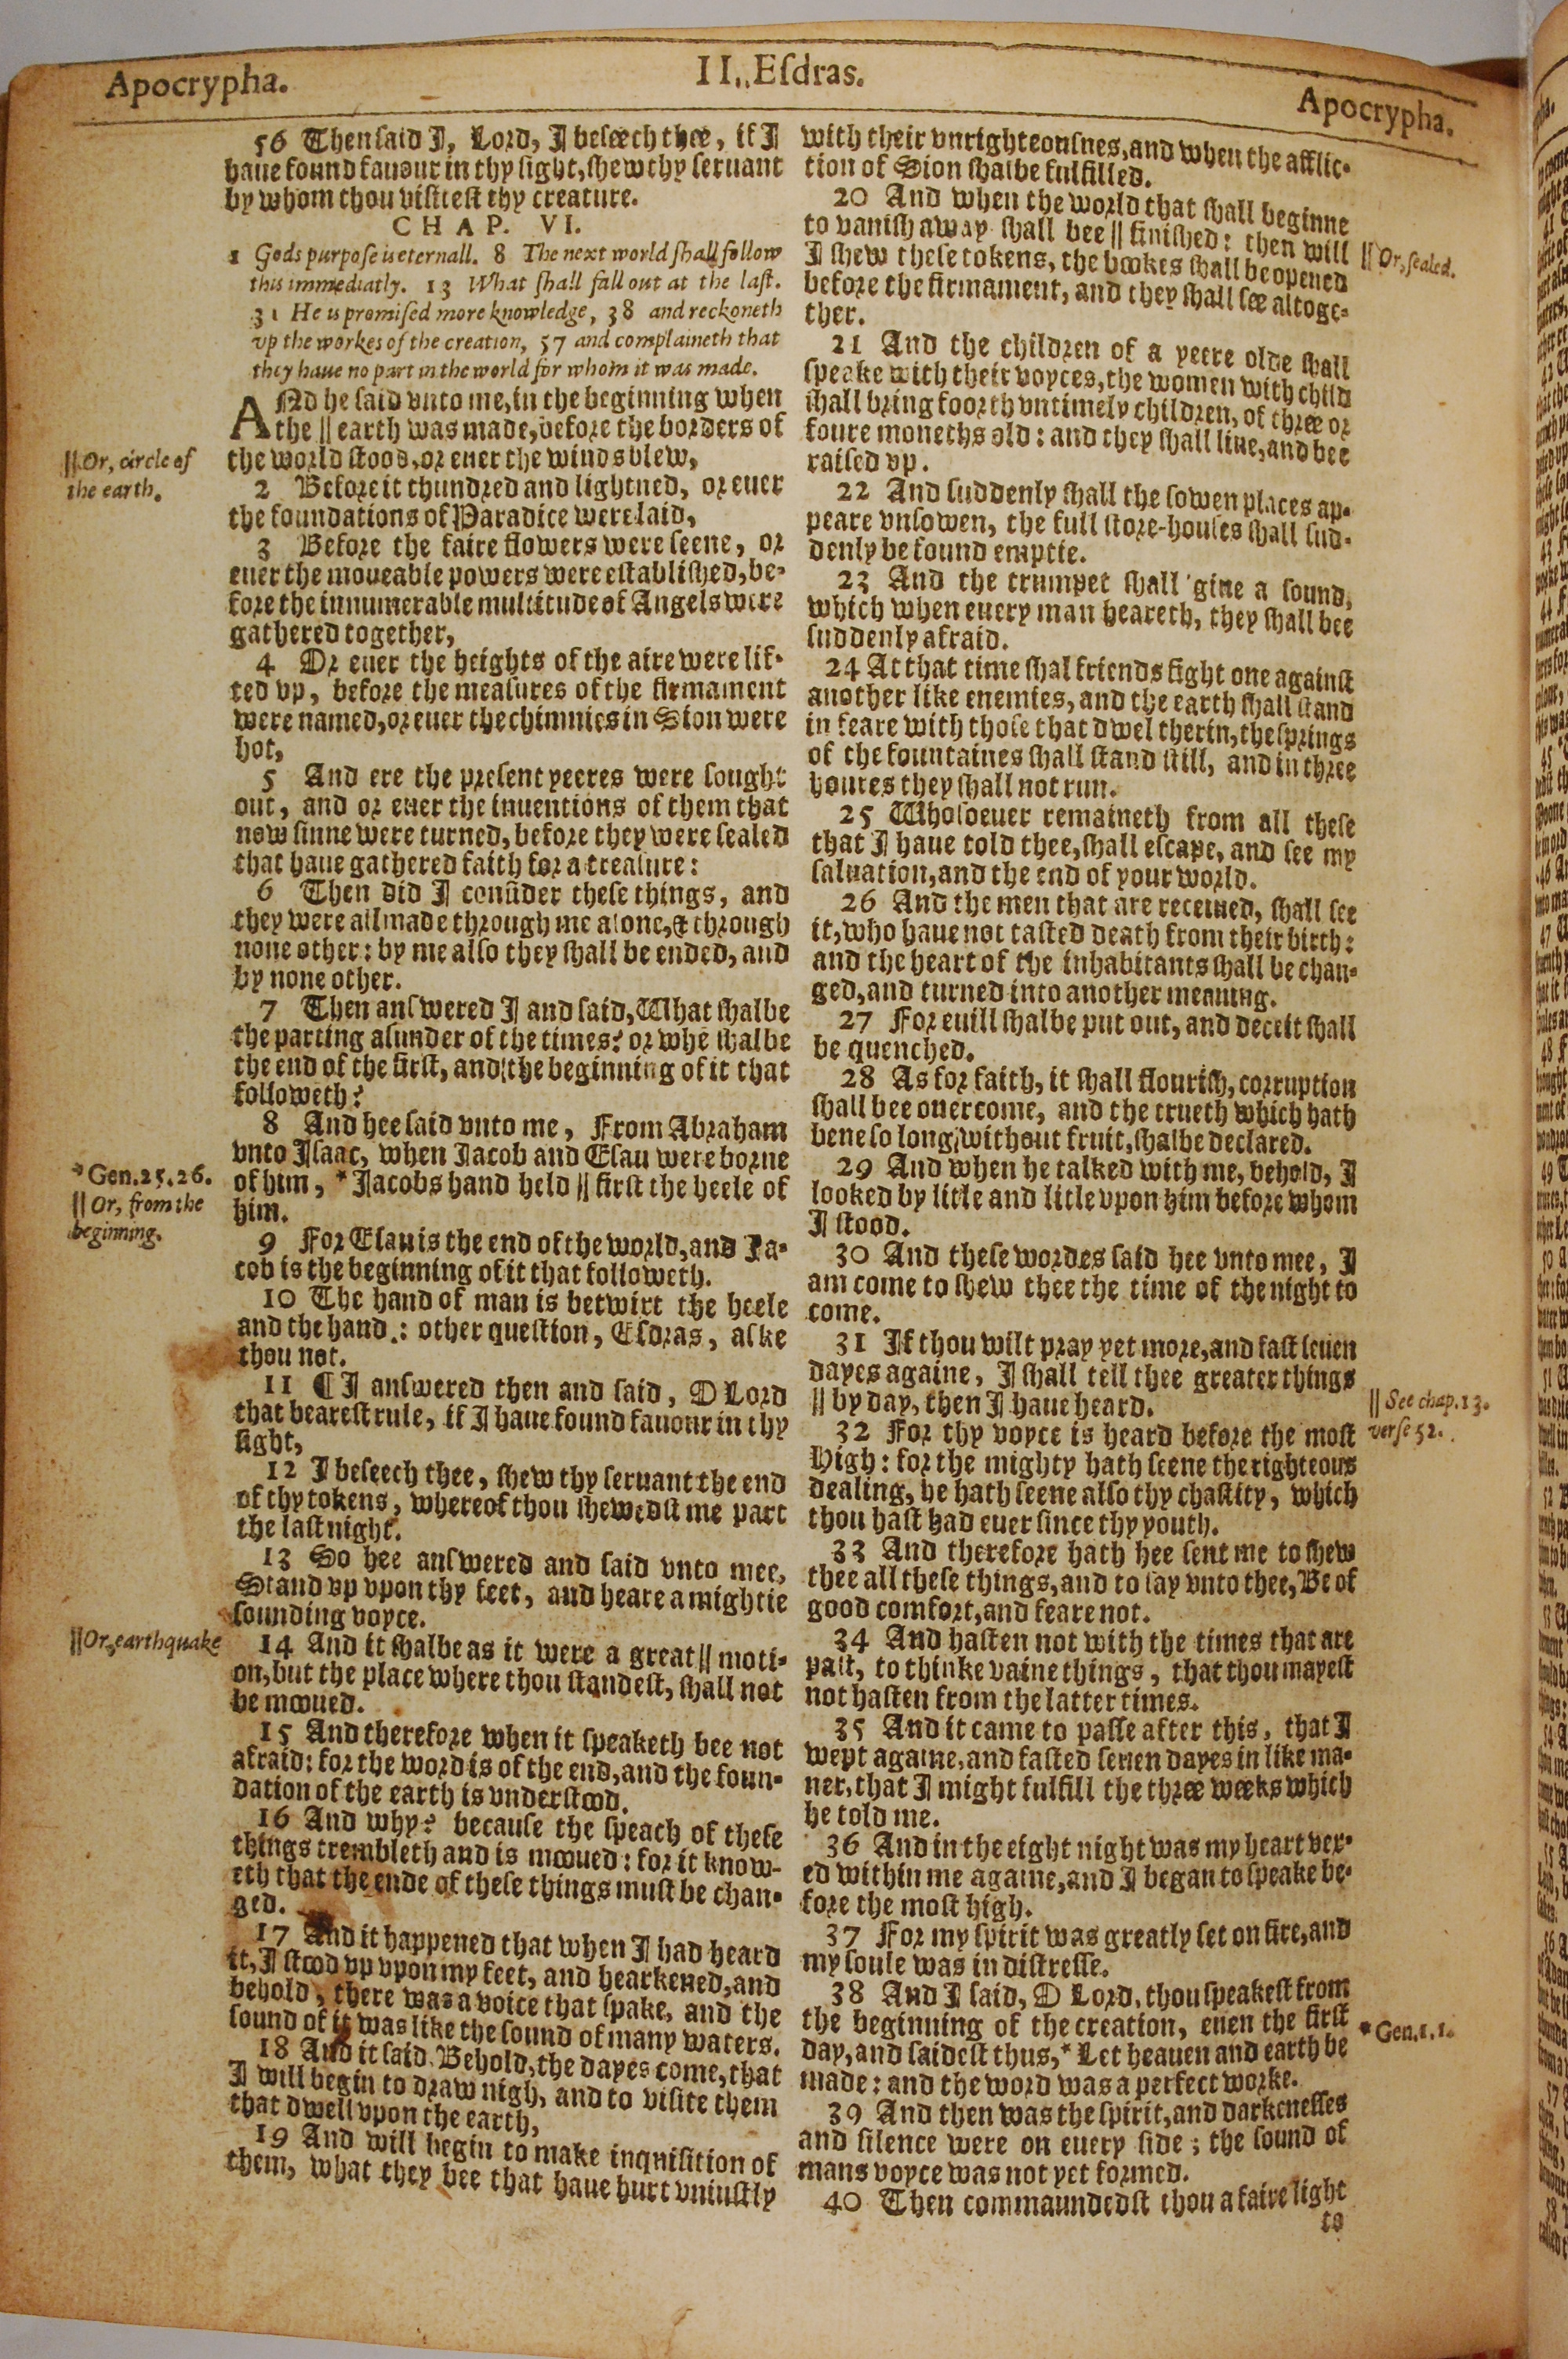 Apocrypha.
II. Eſdras.
Apocrypha.
56 Then ſaid I, Lord, I beſeech thee, if I
haue found fauour in thy ſight, ſhew thy ſeruant
by whom thou viſiteſt thy creature.
CHAP. VI.
1 Gods purpoſe is eternall. 8 The next world ſhall follow
this immediatly. 13 What ſhall fall out at the laſt.
31 He is promiſed more knowledge, 38 and reckoneth
vp the workes of the creation, 57 and complaineth that
they haue no part in the world for whom it was made.
ANd he ſaid vnto me, in the beginning when
the || earth was made, before the borders of
the world ſtood, or euer the winds blew,
|| Or, circle of
the earth.
2 Before it thundred and lightned, or euer
the foundations of Paradice were laid,
3 Before the faire flowers were ſeene, or
euer the moueable powers were eſtabliſhed, be-
fore the innumerable multitude of Angels were
gathered together,
4 Or euer the heights of the aire were lif-
ted vp, before the meaſures of the firmament
were named, or euer the chimnies in Sion were
hot,
5 And ere the preſent yeeres were ſought
out, and or euer the inuentions of them that
now ſinne were turned, before they were ſealed
that haue gathered faith for a treaſure:
6 Then did I conſider theſe things, and
they were all made through me alone, & through
none other: by me alſo they ſhall be ended, and
by none other.
7 Then anſwered I and ſaid, What ſhalbe
the parting aſunder of the times? or whē ſhalbe
the end of the firſt, and the beginning of it that
followeth?
8 And hee ſaid vnto me, From Abraham
vnto Iſaac, when Iacob and Eſau were borne
of him, * Iacobs hand held || firſt the heele of
him.
* Gen. 25. 26.
|| Or, from the
beginning.
9 For Eſau is the end of the world, and Ia-
cob is the beginning of it that followeth.
10 The hand of man is betwixt the heele
and the hand.: other queſtion, Eſdras, aſke
thou not.
11 ¶ I anſwered then and ſaid, O Lord
that beareſt rule, if I haue found fauour in thy
ſight,
12 I beſeech thee, ſhew thy ſeruant the end
of thy tokens, whereof thou ſhewedſt me part
the laſt night.
13 So hee anſwered and ſaid vnto mee,
Stand vp vpon thy feet, and heare a mightie
ſounding voyce.
14 And it ſhalbe as it were a great || moti-
on, but the place where thou ſtandeſt, ſhall not
be mooued.
|| Or, earthquake
15 And therefore when it ſpeaketh bee not
afraid: for the word is of the end, and the foun-
dation of the earth is vnderſtood.
16 And why? becauſe the ſpeach of theſe
things trembleth and is mooued: for it know-
eth that the ende of theſe things muſt be chan-
ged.
17 And it happened that when I had heard
it, I ſtood vp vpon my feet, and hearkened, and
behold, there was a voice that ſpake, and the
ſound of it was like the ſound of many waters.
18 And it ſaid, Behold, the dayes come, that
I will begin to draw nigh, and to viſite them
that dwell vpon the earth,
19 And will begin to make inquiſition of
them, what they bee that haue hurt vniuſtly
with their vnrighteouſnes, and when the afflic-
tion of Sion ſhalbe fulfilled.
20 And when the world that ſhall beginne
to vaniſh away ſhall bee || finiſhed: then will
I ſhew theſe tokens, the bookes ſhall be opened
before the firmament, and they ſhall ſee altoge-
ther.
|| Or, ſealed.
21 And the children of a yeere olde ſhall
ſpeake with their voyces, the women with child
ſhall bring foorth vntimely children, of three or
foure moneths old: and they ſhall liue, and bee
raiſed vp.
22 And ſuddenly ſhall the ſowen places ap-
peare vnſowen, the full ſtore-houſes ſhall ſud-
denly be found emptie.
23 And the trumpet ſhall giue a ſound,
which when euery man heareth, they ſhall bee
ſuddenly afraid.
24 At that time ſhal friends fight one againſt
another like enemies, and the earth ſhall ſtand
in feare with thoſe that dwel therin, the ſprings
of the fountaines ſhall ſtand ſtill, and in three
houres they ſhall not run.
25 Whoſoeuer remaineth from all theſe
that I haue told thee, ſhall eſcape, and ſee my
ſaluation, and the end of your world.
26 And the men that are receiued, ſhall ſee
it, who haue not taſted death from their birth:
and the heart of the inhabitants ſhall be chan-
ged, and turned into another meaning.
27 For euill ſhalbe put out, and deceit ſhall
be quenched.
28 As for faith, it ſhall flouriſh, corruption
ſhall bee ouercome, and the trueth which hath
bene ſo long, without fruit, ſhalbe declared.
29 And when he talked with me, behold, I
looked by litle and litle vpon him before whom
I ſtood.
30 And theſe wordes ſaid hee vnto mee, I
am come to ſhew thee the time of the night to
come.
31 If thou wilt pray yet more, and faſt ſeuen
dayes againe, I ſhall tell thee greater things
|| by day, then I haue heard.
|| See chap. 13.
verſe 52.
32 For thy voyce is heard before the moſt
High: for the mighty hath ſeene the righteous
dealing, he hath ſeene alſo thy chaſtity, which
thou haſt had euer ſince thy youth.
33 And therefore hath hee ſent me to ſhew
thee all theſe things, and to ſay vnto thee, Be of
good comfort, and feare not.
34 And haſten not with the times that are
paſt, to thinke vaine things, that thou mayeſt
not haſten from the latter times.
35 And it came to paſſe after this, that I
wept againe, and faſted ſeuen dayes in like ma-
ner, that I might fulfill the three weeks which
he told me.
36 And in the eight night was my heart vex-
ed within me againe, and I began to ſpeake be-
fore the moſt high.
37 For my ſpirit was greatly ſet on fire, and
my ſoule was in diſtreſſe.
38 And I ſaid, O Lord, thou ſpeakeſt from
the beginning of the creation, euen the firſt
day, and ſaideſt thus, * Let heauen and earth be
made: and the word was a perfect worke.
* Gen. 1. 1.
39 And then was the ſpirit, and darkeneſſes
and ſilence were on euery ſide; the ſound of
mans voyce was not yet formed.
40 Then commaundedſt thou a faire light
to